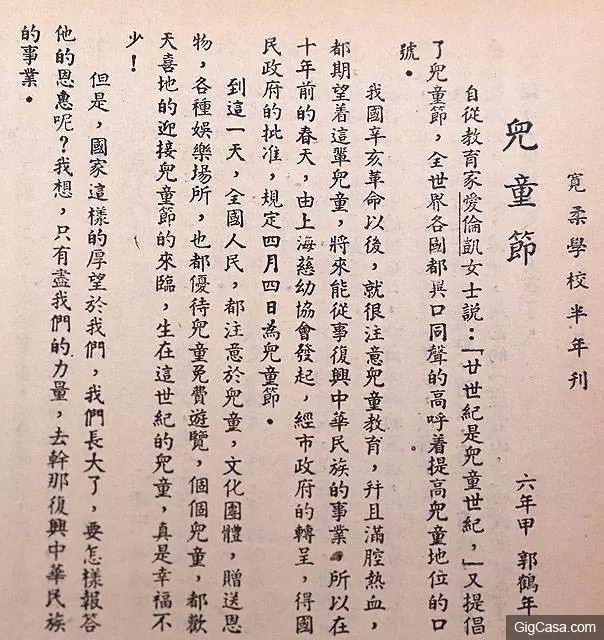 寬柔學校半年刊
兒童節
六年甲 郭鶴年
自從教育家愛倫凱女士說：「廿世紀是兒童世紀，」又提倡
了兒童節，全世界各國都異口同聲的高呼着提高兒童地位的口
號。
我國辛亥革命以後，就很注意兒童教育，幷且滿腔熱血，
都期望着這輩兒童，將來能從事復興中華民族的事業。所以在
十年前的春天，由上海慈幼協會發起，經市政府的轉呈，得國
民政府的批准，規定四月四日為兒童節。
到這一天，全國人民，都注意於兒童，文化團體，贈送恩
物，各種娛樂場所，也都優待兒童免費遊覽，個個兒童，都歡
天喜地的迎接兒童節的來臨，生在這世紀的兒童，真是幸福不
少！
但是，國家這樣的厚望於我們，我們長大了，要怎樣報答
他的恩惠呢？我想，只有盡我們的力量，去幹那復興中華民族
的事業。
GigCasa.com